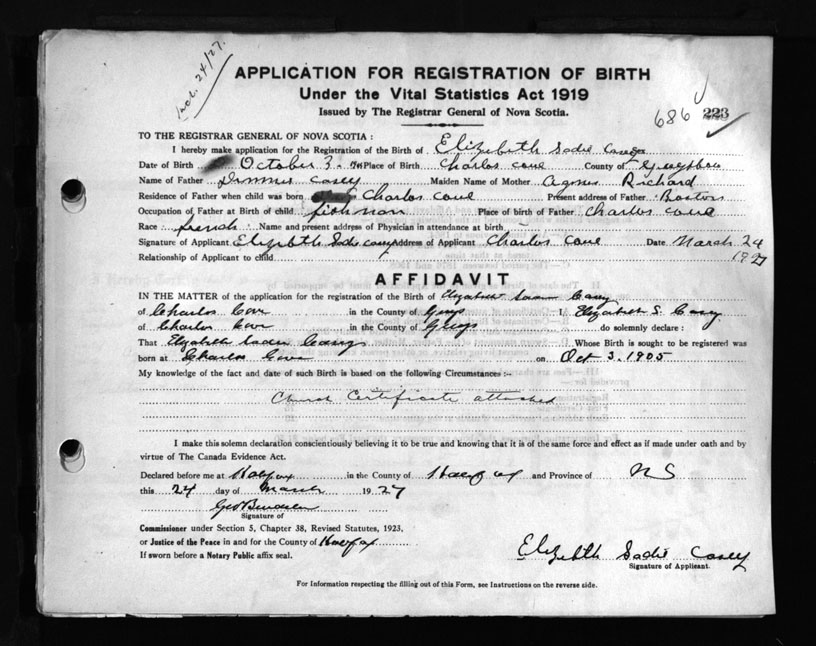 Mch. 24/27.
APPLICATION FOR REGISTRATION OF BIRTH
Under the Vital Statistics Act 1919
Issued by The Registrar General of Nova Scotia.
686 223
TO THE REGISTRAR GENERAL OF NOVA SCOTIA :
I hereby make application for the Registration of the Birth of Elizabeth Sadie Casey
Date of Birth October 3 Place of Birth Charlos cove County of Guysboro
Name of Father Dimmis Casey Maiden Name of Mother Agnes Richard
Residence of Father when child was born Charlos cove Present address of Father Boston
Occupation of Father at Birth of child fishman Place of birth of Father Charlos cove
Race french Name and present address of Physician in attendance at birth
Signature of Applicant Elizibth Sadie casey Address of Applicant Charlos Cove Date March 24
1927
Relationship of Applicant to child
AFFIDAVIT
IN THE MATTER of the application for the registration of the Birth of Elizabeth Casey
of Charlos Cove in the County of Guys I, Elizabeth S. Casey
of Charlos Cove in the County of Guys do solemnly declare :
That Elizabeth Sadie Casey Whose Birth is sought to be registered was
born at Charlos Cove on Oct 3. 1905
My knowledge of the fact and date of such Birth is based on the following Circumstances :-
Church Certificate attached
I make this solemn declaration conscientiously believing it to be true and knowing that it is of the same force and effect as if made under oath and by
virtue of The Canada Evidence Act.
Declared before me at Halifax in the County of Halifax and Province of N S
this 24 day of March 1927
Geo
Signature of
Commissioner under Section 5, Chapter 38, Revised Statutes, 1923,
or Justice of the Peace in and for the County of Halifax
If sworn before a Notary Public affix seal.
Elizibth Sadie Casey
Signature of Applicant.
For Information respecting the filling out of this Form, see Instructions on the reverse side.